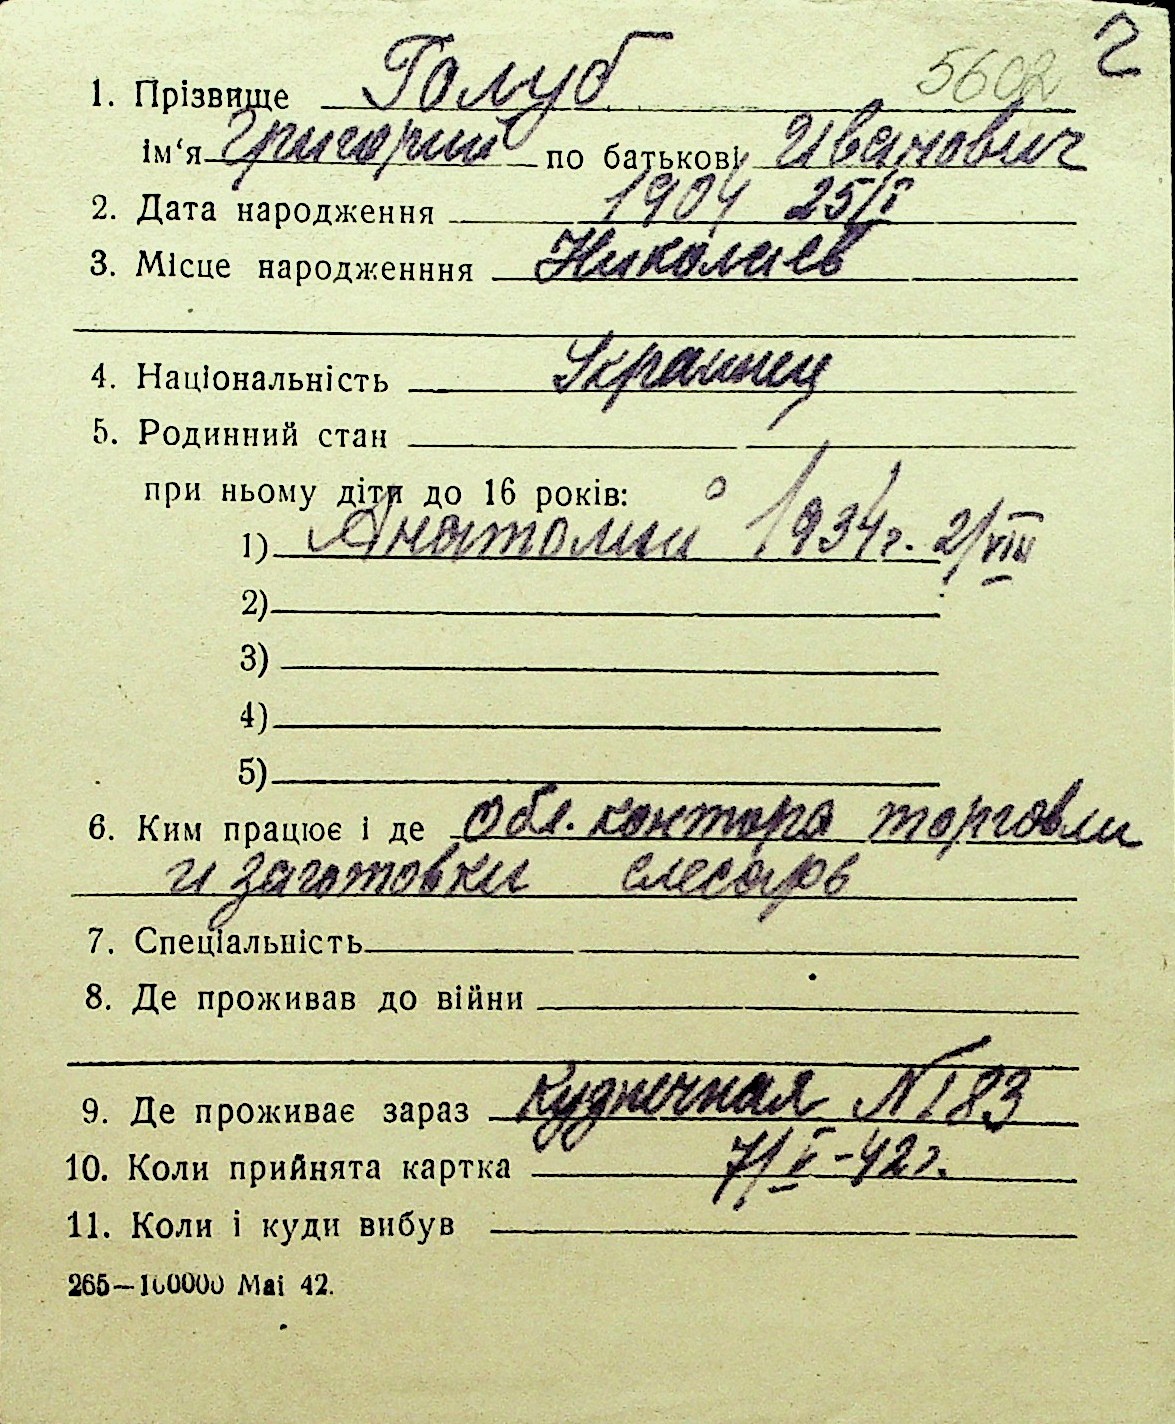 5602 Г
1. Прізвище Голуб
ім‘я Григорий по батькові Иванович
2. Дата народження 1904 25/I
3. Місце народженння Николаев
4. Національність Украинец
5. Родинний стан
при ньому діти до 16 років:
1) Анатолий 1934 г. 2/VIII
2)
3)
4)
5)
6. Ким працює і де Обл. контора торговли
и заготовки слесарь
7. Спеціальність
8. Де проживав до війни
9. Де проживає зараз Кузнечная № 183
10. Коли прийнята картка 7/V-42 г.
11. Коли і куди вибув
265—100000 Mai 42.